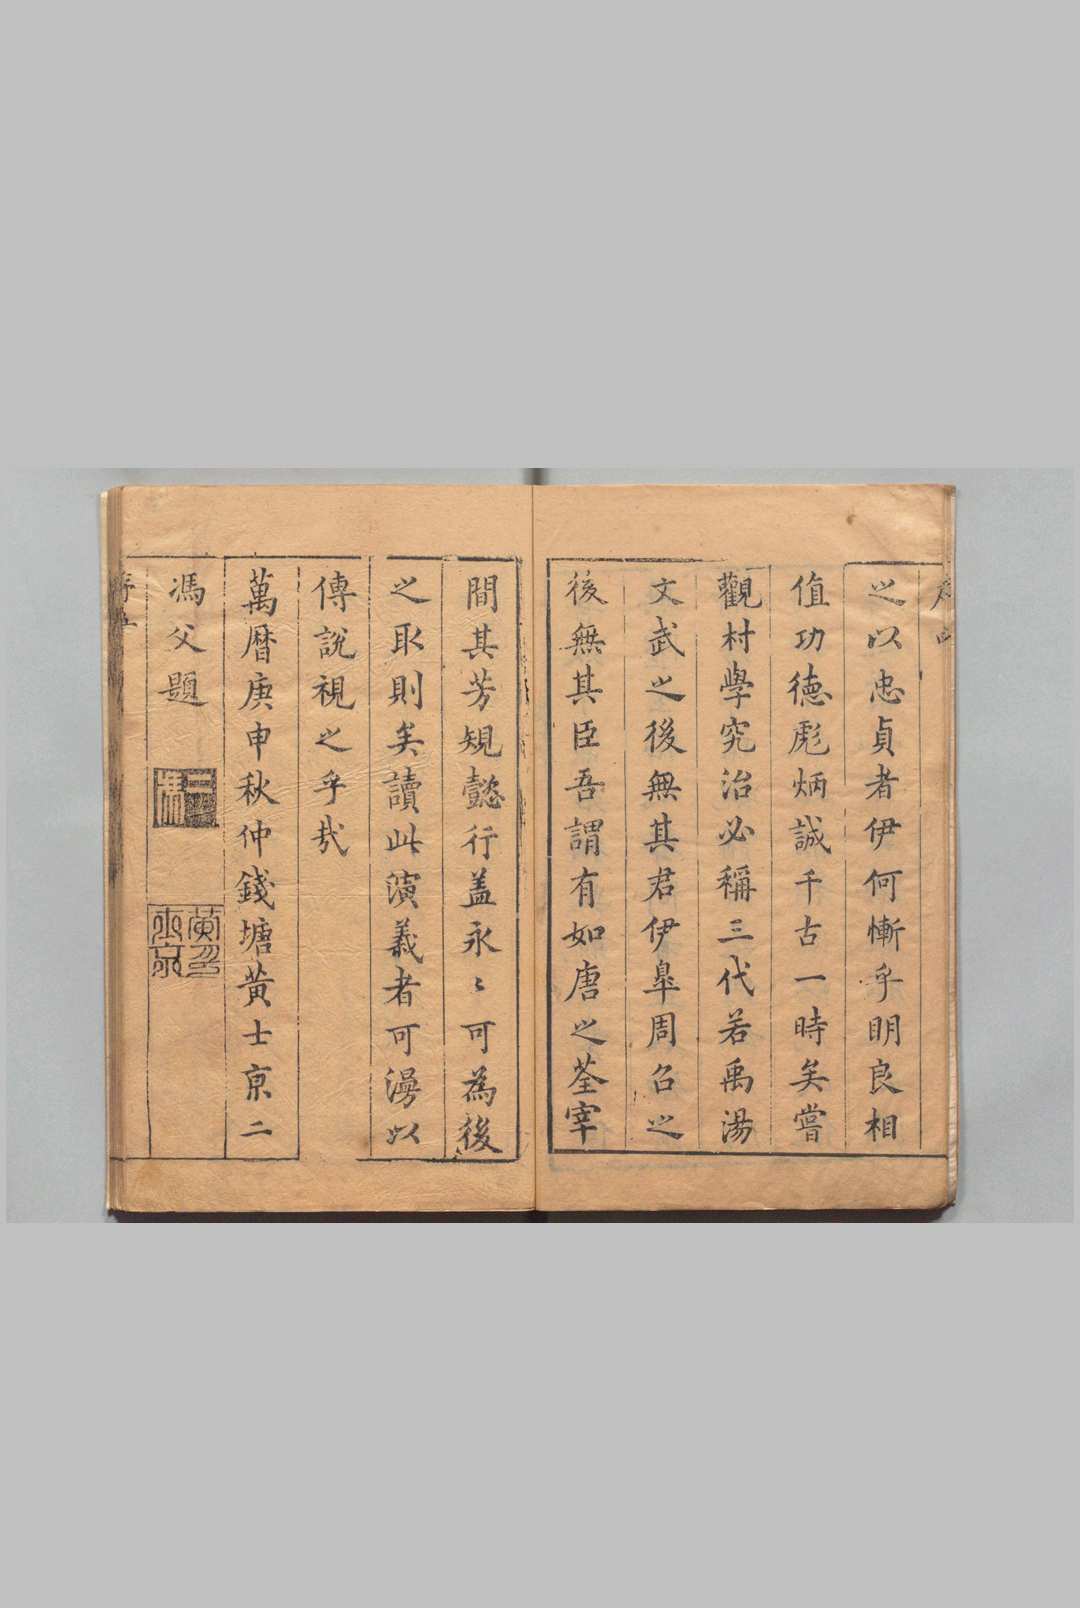 之以忠貞者伊何慚乎明良相
值功德彪炳誠千古一時矣嘗
觀村學究治必稱三代若禹湯
文武之後無其君伊臯周召之
後無其臣吾謂有如唐之荃宰
間其芳規懿行盖永〻可為後
之取則矣讀此演義者可漫以
傳說視之乎哉
萬曆庚申秋仲錢塘黃士京二
馮父題
二馮
黃士京印